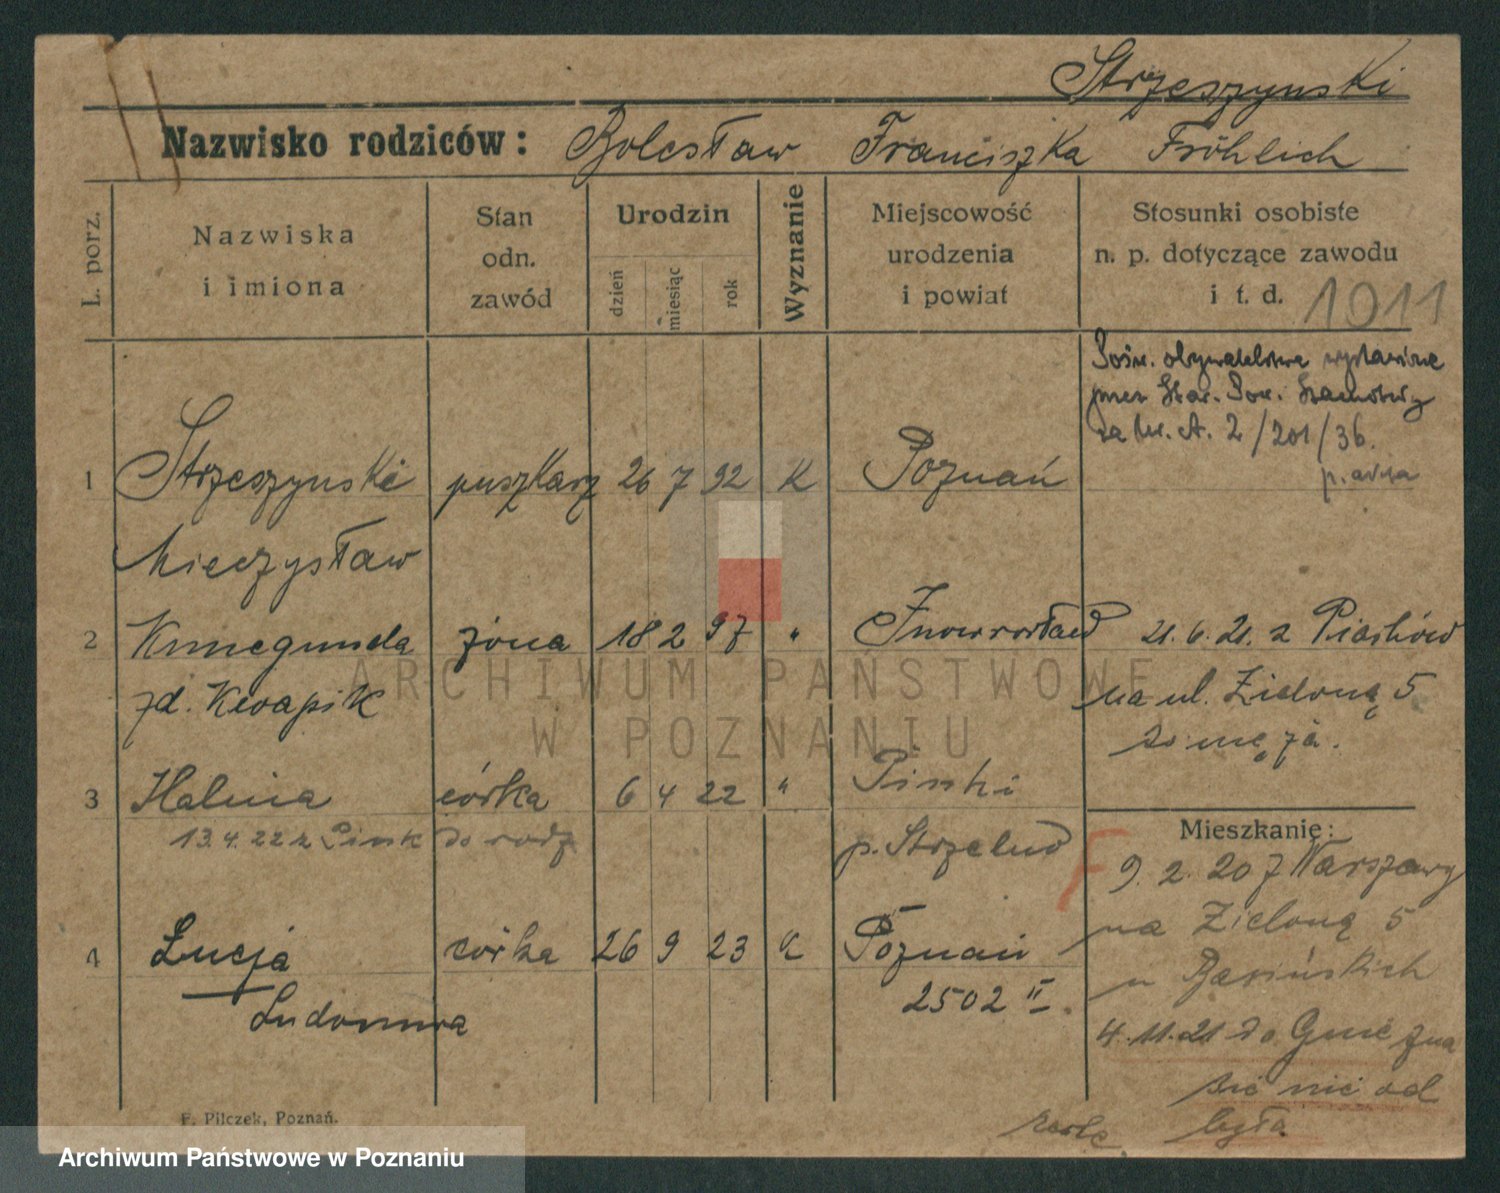 Strzeszynski
Nazwisko rodziców: Bolesław Franciszka Fröhlich
L. porz.
Nazwiska
i imiona
Stan
odn.
zawód
Urodzin
dzień
miesiąc
rok
Wyznanie
Miejscowość
urodzenia
i powiat
Stosunki osobiste
n. p. dotyczące zawodu
i t. d. 1911
Pośw. obywatelstwa wystawione
przez Star. Pow. Szamotuły
za Nr. A. 2/201/36.
1 Strzeszynski puszkarz 26 7 92 K Poznań
Mieczysław
2 Kunegunda żona 18 2 97 " Inowrocław 21.6.21. z Piasków
zd. Kwapik na ul. Zieloną 5
do męża.
3 Halina córka 6 4 22 " Pinki
13.4.22 z Pink do rodz p. Strzelno
Mieszkanie:
F 9. 2. 20 z Warszawy
na Zieloną 5
4 Łucja córka 26 9 23 K Poznań
u Basińskich
Ludomira 2502 II.
4.11.21 do Gniezna
się nie od
była.
F. Pilczek, Poznań.
ARCHIWUM PAŃSTWOWE
W POZNANIU
Archiwum Państwowe w Poznaniu